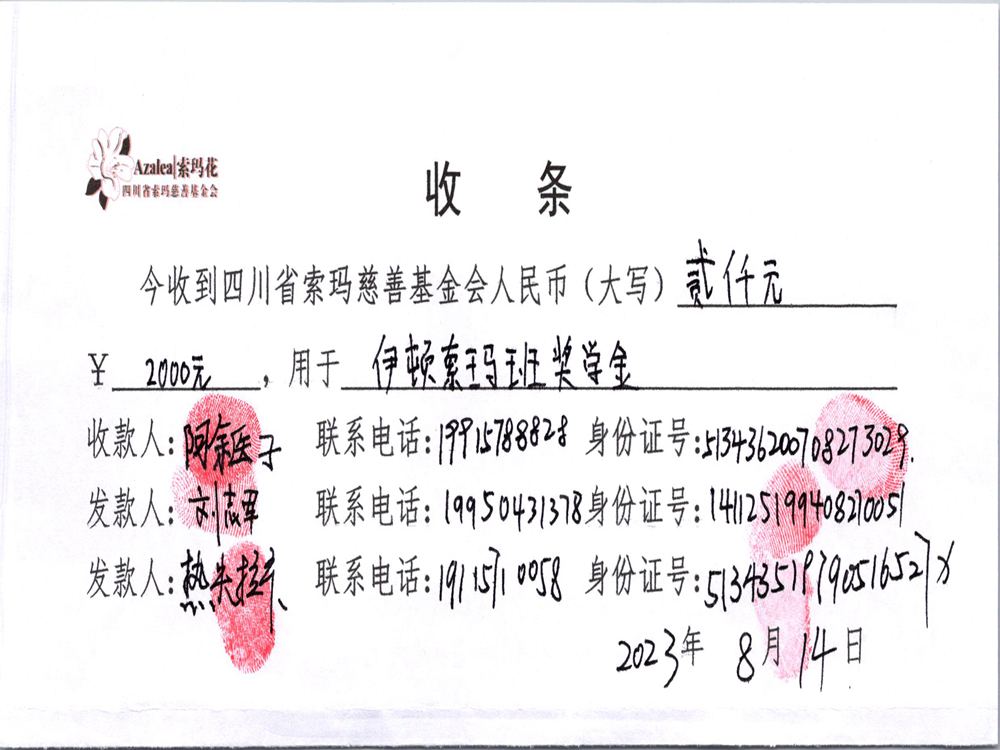 Azalea|索玛花
四川省索玛慈善基金会
收 条
今收到四川省索玛慈善基金会人民币（大写）贰仟元
¥ 2000元，用于 伊顿索玛班奖学金
收款人: 联系电话:19915788828 身份证号:513436200708273029.
发款人: 刘志军 联系电话:19950431378 身份证号:141125199408210051
发款人: 联系电话:19115710058 身份证号:51343519790516527X
2023年 8月14日